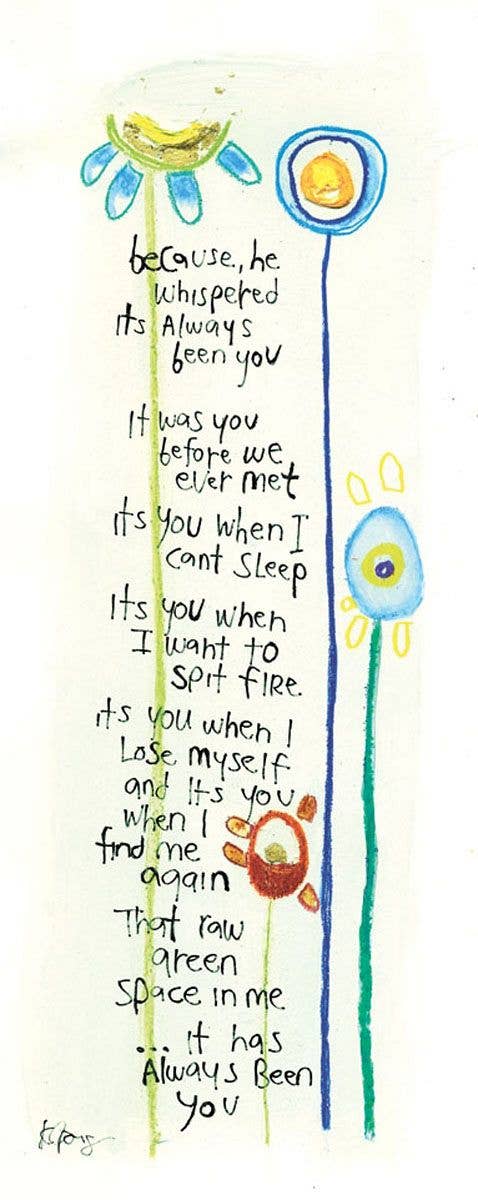 because, he
whispered
its Always
been you
It was you
before we
ever met
its you when I
cant sleep
Its you when
I want to
spit fire.
its you when I
Lose myself
and its you
when I
find me
again
That raw
green
space in me
... it has
Always Been
you